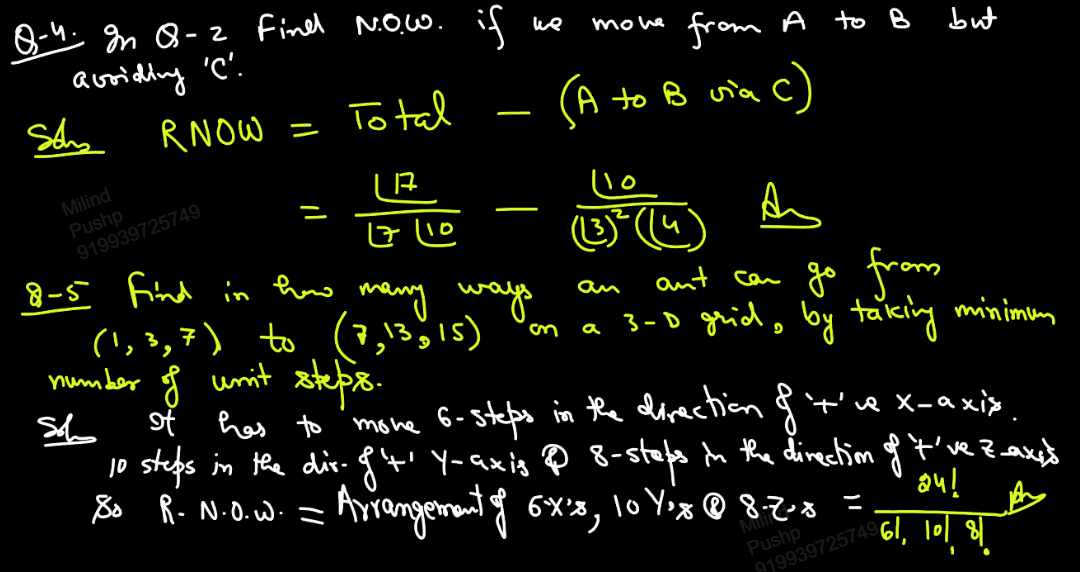 Q-4. In Q-2 Find N.O.W. if we move from A to B but
avoiding 'C'.
Soln RNOW = Total - (A to B via C)
= ⌊17 / ⌊7 ⌊10 - ⌊10 / (⌊3)² (⌊4) Ans
Milind
Pushp
919939725749
Q-5 Find in how many ways an ant can go from
(1, 3, 7) to (7, 13, 15) on a 3-D grid, by taking minimum
number of unit steps.
Soln It has to move 6-steps in the direction of '+' ve X-axis.
10 steps in the dir. of '+' Y-axis & 8-steps in the direction of '+' ve Z-axis
So R. N.O.W. = Arrangement of 6 X's, 10 Y's & 8 Z's = 24! / 6!, 10!, 8! Ans
Milind
Pushp
919939725749